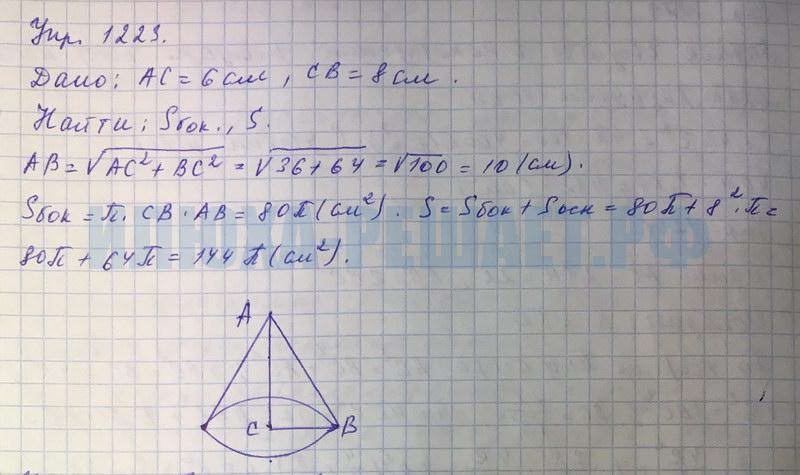 Упр. 1223.
Дано: AC = 6 см, CB = 8 см.
Найти: Sбок., S.
AB = √AC² + BC² = √36 + 64 = √100 = 10 (см).
Sбок = π · CB · AB = 80π (см²). S = Sбок + Sосн = 80π + 8² · π =
80π + 64π = 144π (см²).
ИЛЮШКА-РЕШАЕТ.РФ
A
C B